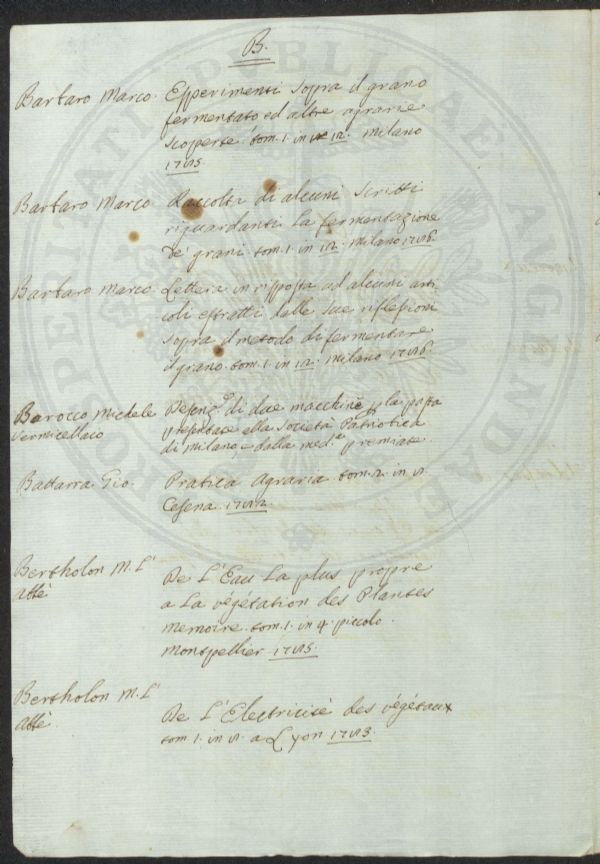 B.
Barbaro Marco. Esperimenti sopra il grano
fermentato ed altre agrarie
scoperte. tom. 1. in 12. Milano
1785
Barbaro Marco Raccolta di alcuni scritti
riguardanti la fermentazione
de' grani tom. 1. in 12. Milano 1786.
Barbaro Marco. Lettera in risposta ad alcuni arti-
coli estratti dalle sue riflessioni
sopra il metodo di fermentare
il grano. tom. 1. in 12. Milano 1786.
Barocco Michele Descriz.e di due macchine p la pasta
Vermicellaio presentate alla Società Patriotica
di Milano, e dalla med.a premiate.
Battarra Gio. Pratica Agraria tom. 2. in 8.
Cesena 1782.
Bertholon M. L' De L'Eau La plus propre
abbè a La végétation des Plantes
memoire. tom. 1. in 4. piccolo.
Montpellier 1785.
Bertholon M. L' De L'Electricité des végétaux
abbè. tom 1. in 8. a Lyon 1783.
PROSPERITATI PUBLICAE AUGENDAE